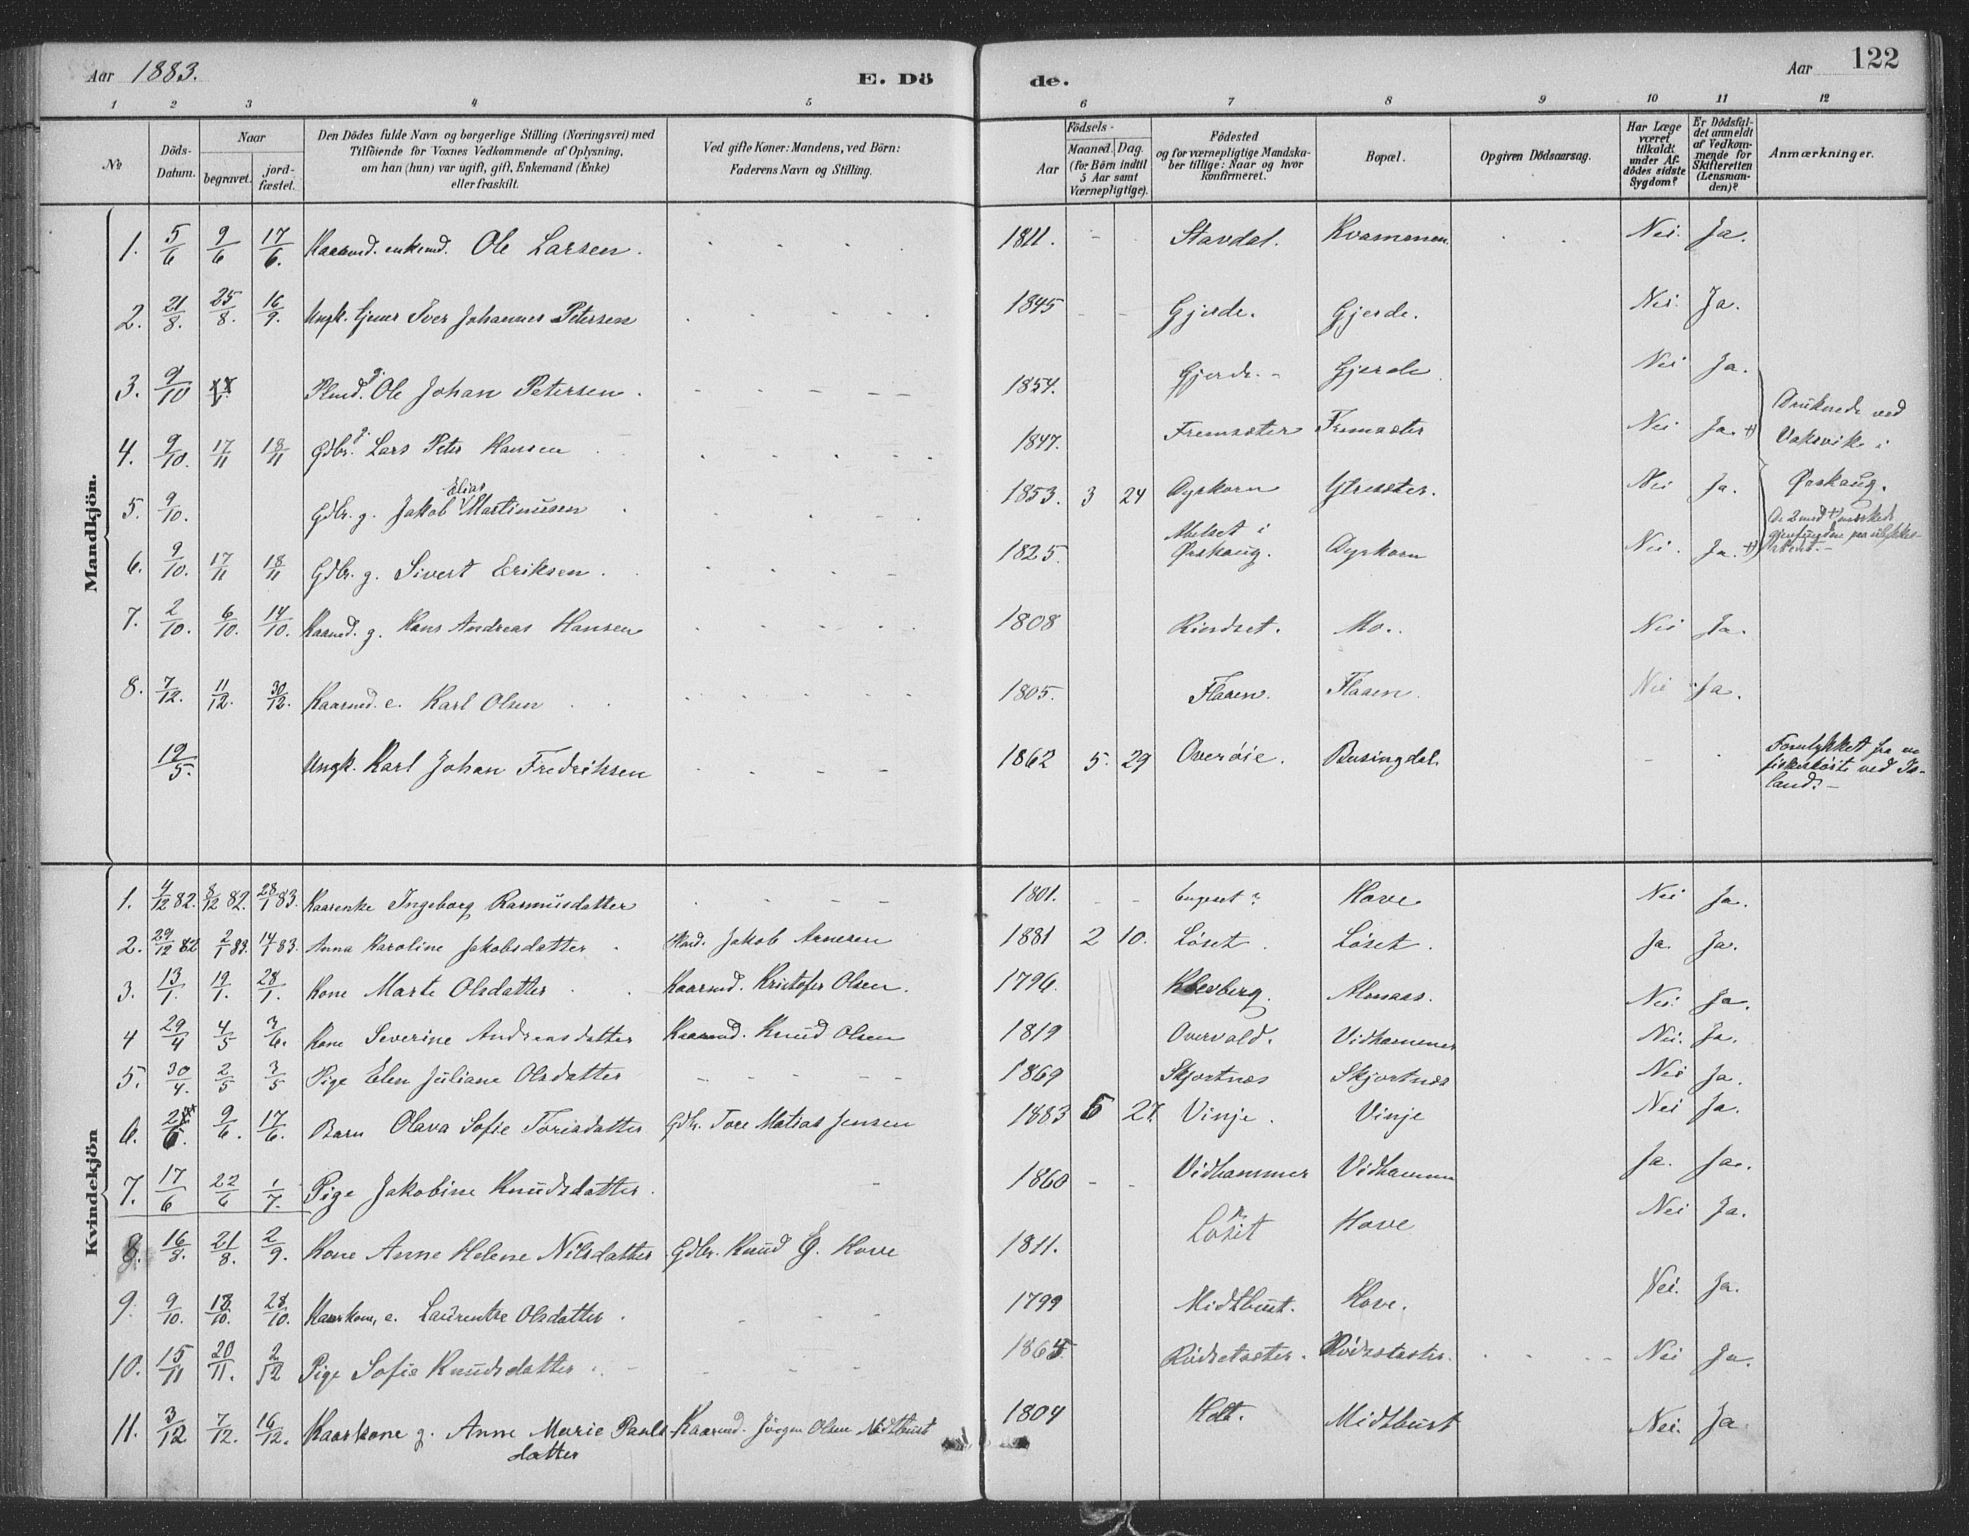 Aar 1883.
E. Dö
de.
Aar
122
1 2 3 4 5 6 7 8 9 10 11 12
№
Döds-
Datum.
Naar
begravet.
jord-
fæstet.
Den Dödes fulde Navn og borgerlige Stilling (Næringsvei) med
Tilföiende for Voxnes Vedkommende af Oplysning,
om han (hun) var ugift, gift, Enkemand (Enke)
eller fraskilt.
Ved gifte Koner: Mandens, ved Börn:
Faderens Navn og Stilling.
Födsels-
Aar
Maaned. Dag.
(for Börn indtil
5 Aar samt
Værnepligtige).
Födested
og for værnepligtige Mandska-
ber tillige: Naar og hvor
konfirmeret.
Bopæl.
Opgiven Dödsaarsag.
Har Læge
været
tilkaldt
under Af-
dödes sidste
Sygdom?
Er Dödsfal-
det anmeldt
af Vedkom-
mende for
Skifteretten
(Lensman-
den)?
Anmærkninger.
Mandkjön.
1. 5/6 9/6 17/6. Kaarmd. enkemd. Ole Larsen. 1811. Stavdal. Kvammen. Nei. Ja.
2. 21/8. 25/8. 16/9. Ungk. tjener Iver Johannes Petersen 1845 Gjerde. Gjerde. Nei. Ja.
3. 9/10 Plmd. g. Ole Johan Petersen. 1854. Gjerde. Gjerde Nei Ja.
4. 9/10. 17/11 18/11 Gdbr. g. Lars Peter Hansen 1847. Fremsæter Fremsæter Nei Ja. +)
5. 9/10. Gdbr. g. Jakob Elias Martinusen 1853. 3 24 Dyrkorn Ytresæter. Nei Ja.
6. 9/10. 17/11 18/11 Gdbr. g. Sivert Eriksen. 1825. Abelset i Ørskaug. Dyrkorn Nei. Ja. +)
Druknede ved
Vaksvik i
Ørskaug.
De 2 med +) mærkede
gjenfundne paa ulykkes-
7. 2/10. 6/10. 14/10. Kaarmd. g. Hans Andreas Hansen 1808 Rindset. Mo. Nei Ja.
8. 7/12. 11/12. 30/12. Kaarmd. e. Karl Olsen 1805. Flaaen. Flaaen. Nei Ja.
19/5. Ungk. Karl Johan Fredriksen 1862 5. 29 Overøie. Busingdal.
Forulykket fra en
fiskeskøite ved Is-
land.
Kvindekjön
1. 4/12 82. 8/12 82. 28/1 83. Kaarenke Ingeborg Rasmusdatter 1801. Hove Nei Ja.
2. 29/12 82 2/1 83. 14/1 83. Anna Karoline Jakobsdatter. Plmd. Jakob Arnesen 1881 2 10. Løset. Løset. Ja. Ja.
3. 13/1. 19/1. 28/1 Kone Marte Olsdatter Kaarmd. Kristofer Olsen. 1796. Klevberg. Almaas. Nei. Ja.
4 29/4 4/5 3/6. Kone Severine Andreasdatter Kaarmd. Knud Olsen 1819 Overvald. Vidhammer Nei. Ja.
5. 30/4. 2/5 3/5 Pige Elen Juliane Olsdatter 1869 Skjortnæs Skjortnæs Nei Ja.
6. 9/6. 17/6. Barn Olava Sofie Toresdatter Gdbr. Tore Matias Jensen 1883 5 27. Vinje. Vinje Nei Ja.
7. 17/6 22/6 1/7. Pige Jakobine Knudsdatter. 1860 Vidhammer Vidhammer Ja. Ja.
8. 16/8. 21/8. 2/9. Kone Anne Helene Nilsdatter Gdbr. Knud E. Hove 1811. Løset Hove Nei Ja.
9. 9/10. 18/10. 28/10. Kaarkone, e. Laurentse Olsdatter. 1799 Midtbust. Hove. Nei. Ja.
10. 15/11 20/11. 2/12 Pige Sofie Knudsdatter. 1865. Rødsetsæter. Rødsetsæter. Nei Ja.
11. 3/12 7/12. 16/12. Kaarkone g. Anne Marie Pauls Kaarmd. Jørgen Olsen Midtbust 1804 Holt. Midtbust Nei. Ja
datter